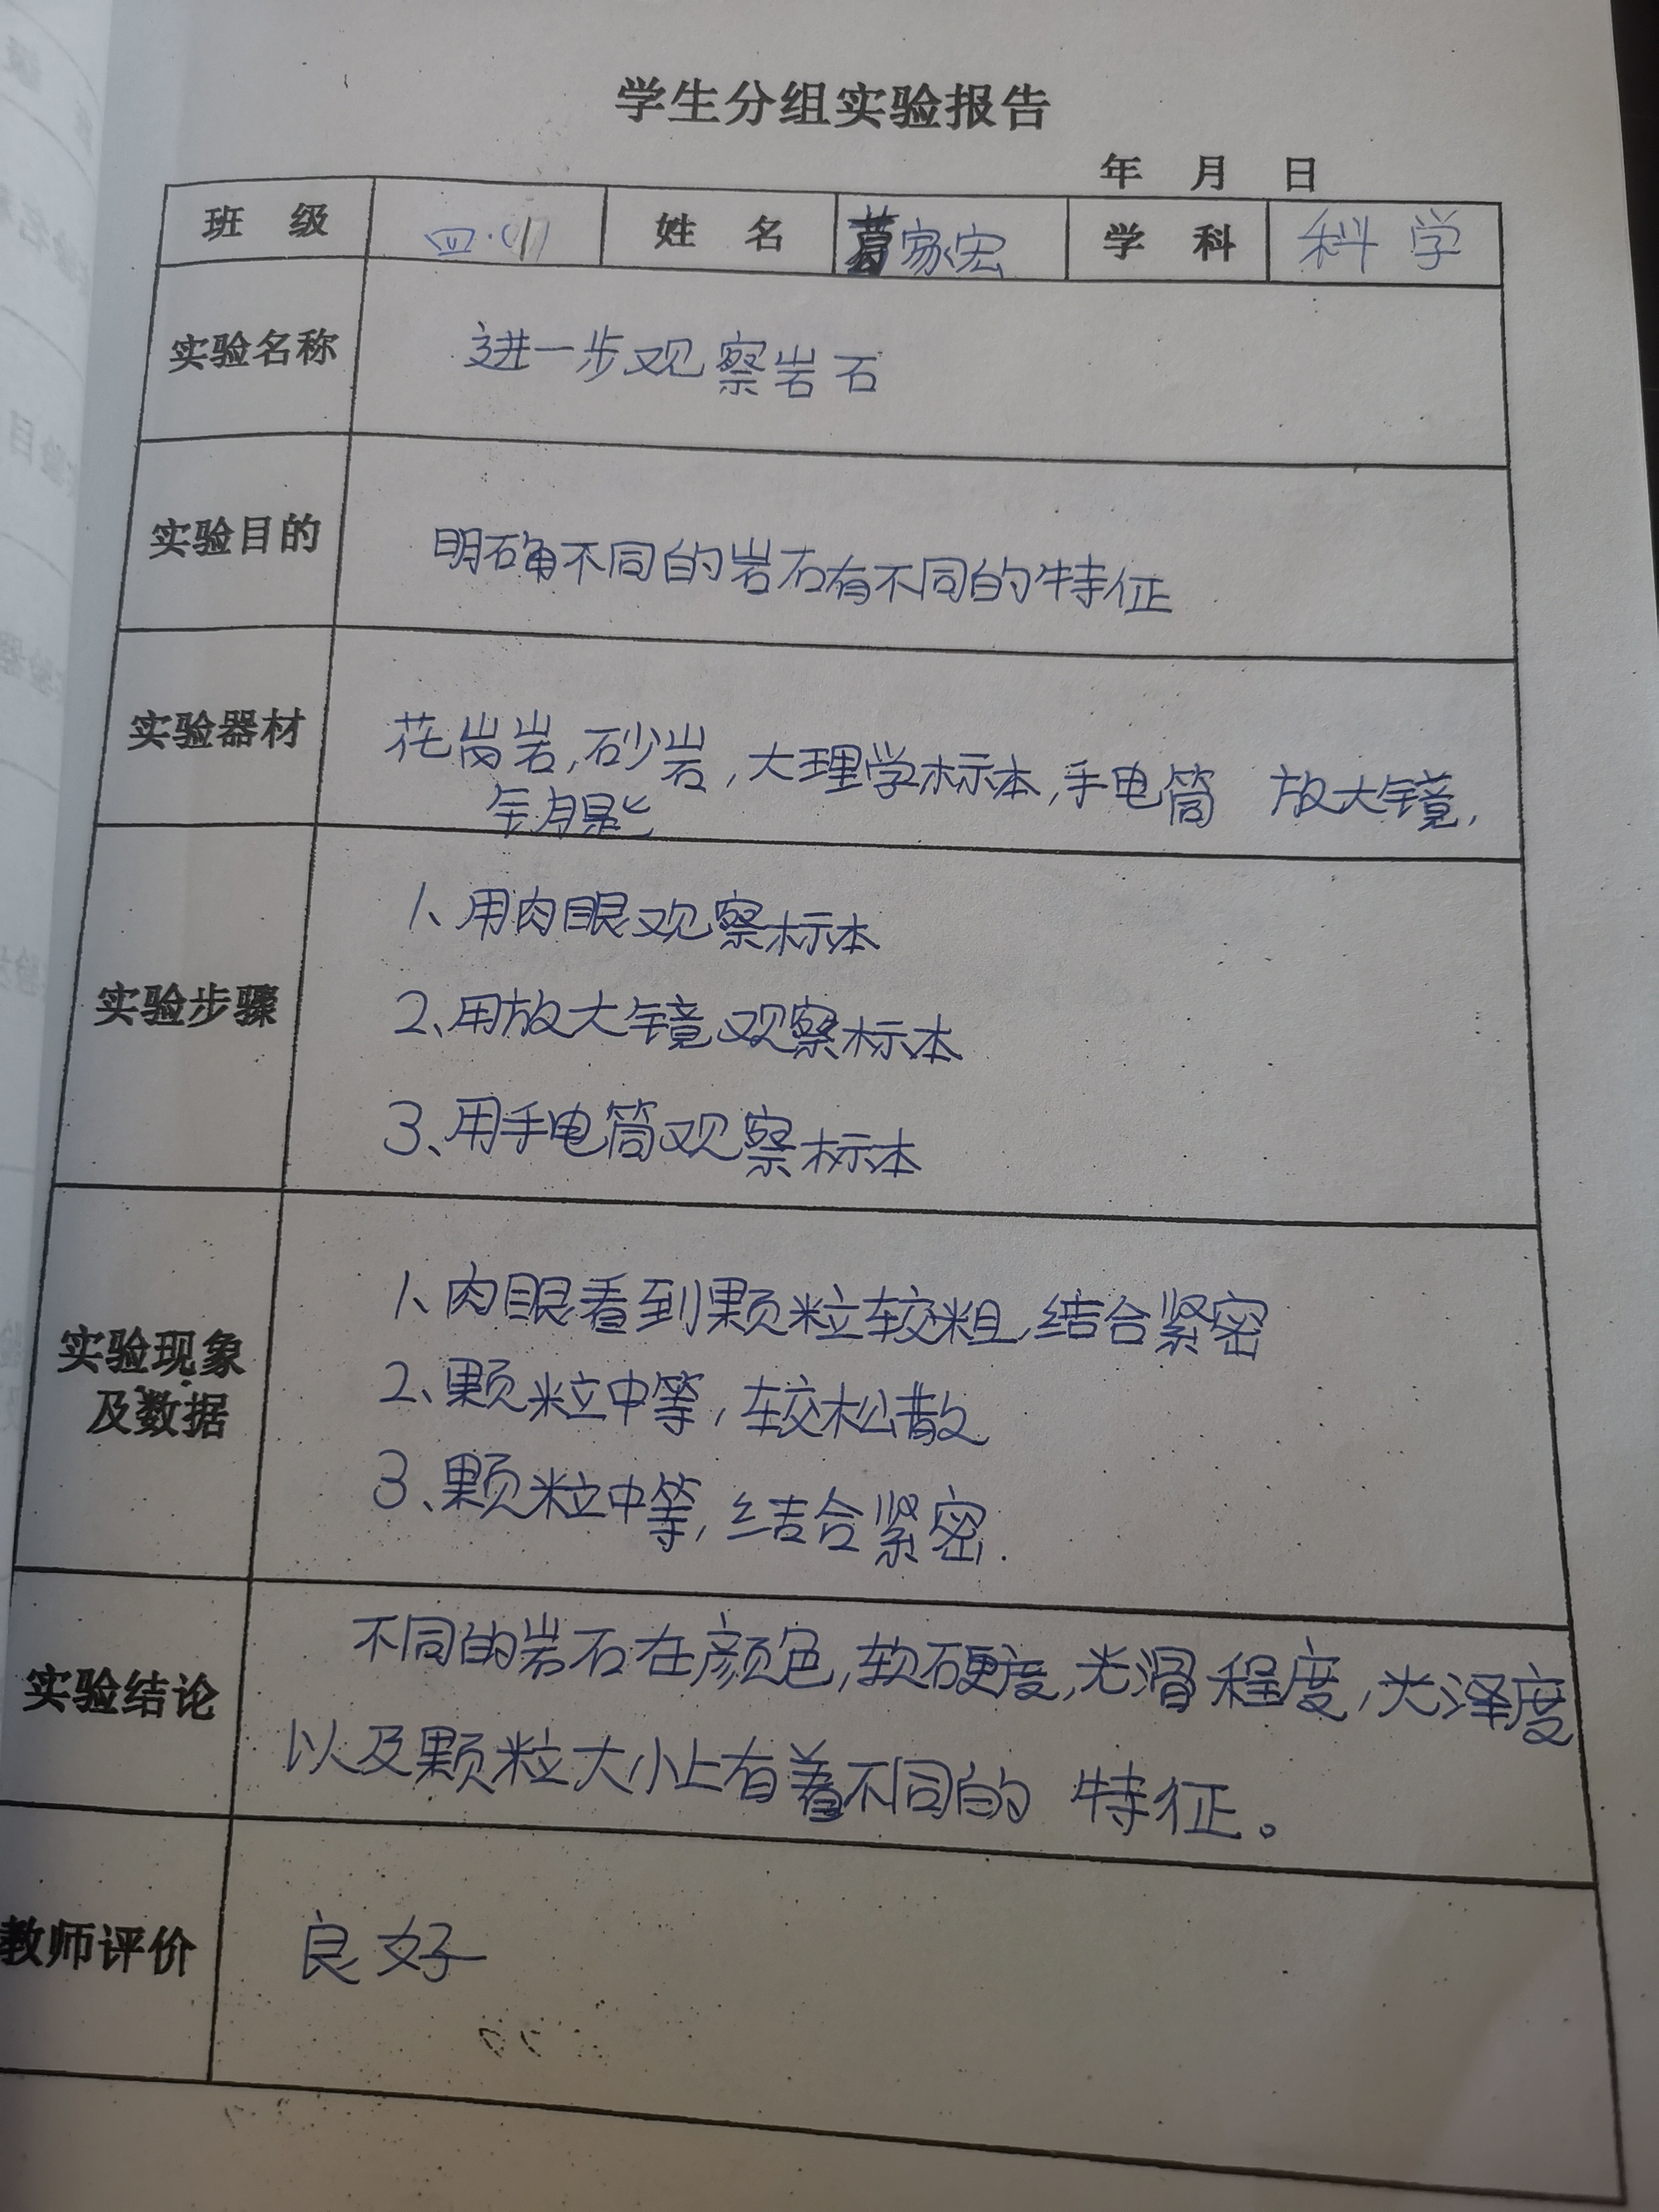 学生分组实验报告
年 月 日
班 级 四. 姓 名 葛家宏 学 科 科学
实验名称 进一步观察岩石
实验目的 明确不同的岩石有不同的特征
实验器材 花岗岩,砂岩,大理学标本,手电筒 放大镜,
钥匙
实验步骤
1、用肉眼观察标本
2、用放大镜观察标本
3、用手电筒观察标本
实验现象
及数据
1、肉眼看到颗粒较粗,结合紧密
2、颗粒中等,较松散
3、颗粒中等,结合紧密.
实验结论
不同的岩石在颜色,软硬度,光滑程度,光泽度
以及颗粒大小上有着不同的 特征。
教师评价 良好